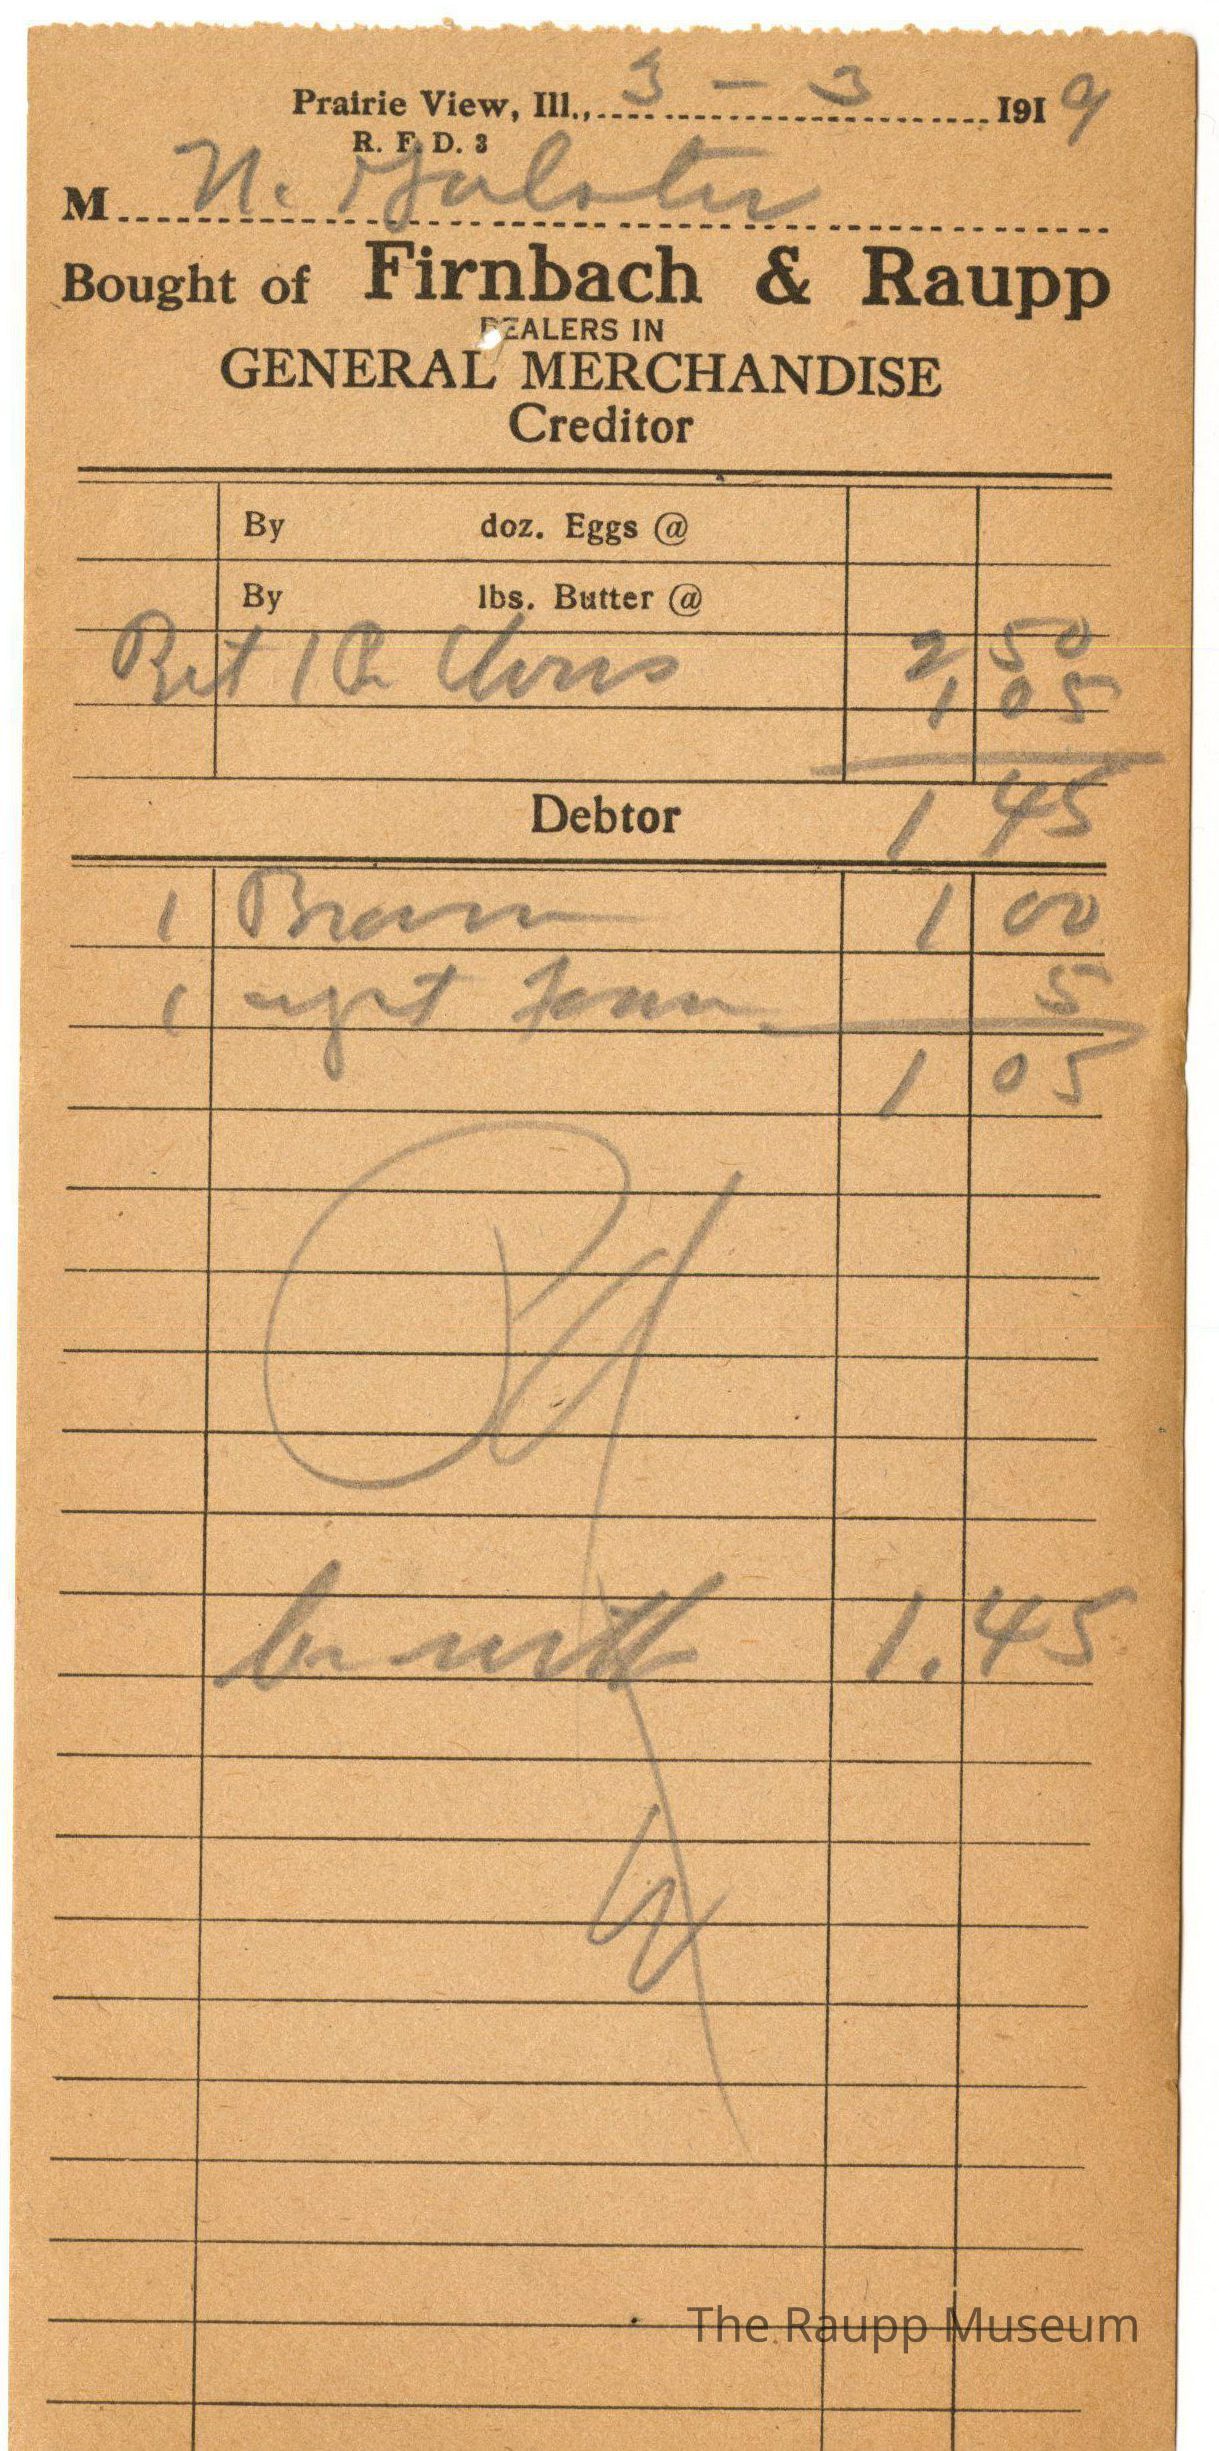 Prairie View, Ill., 3 - 3 1919
R. F. D. 3
M N.
Bought of Firnbach & Raupp
DEALERS IN
GENERAL MERCHANDISE
Creditor
By doz. Eggs @
By lbs. Butter @
Ret 1 Pr 2 50
1 05
Debtor 1 45
1 Broom 1 00
1 5
1 05
Pd
1.45
The Raupp Museum